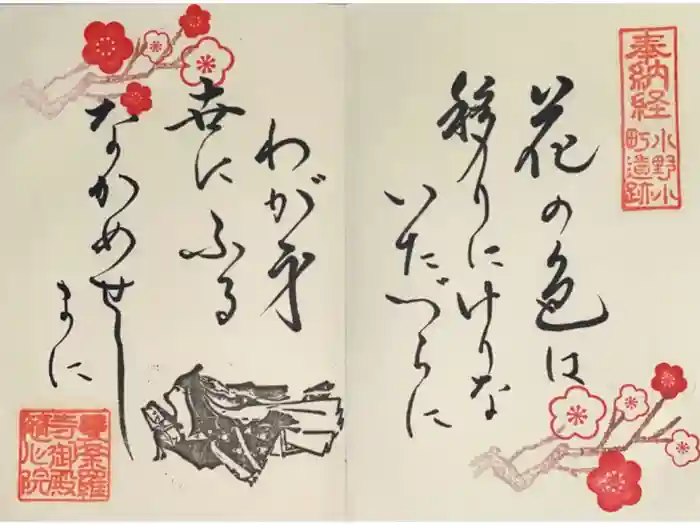 奉納経
小野小
町遺跡
花の色は
移りにけりな
いたづらに
わが身
世にふる
なかめせし
まに
曼荼羅
寺御殿
隨心院